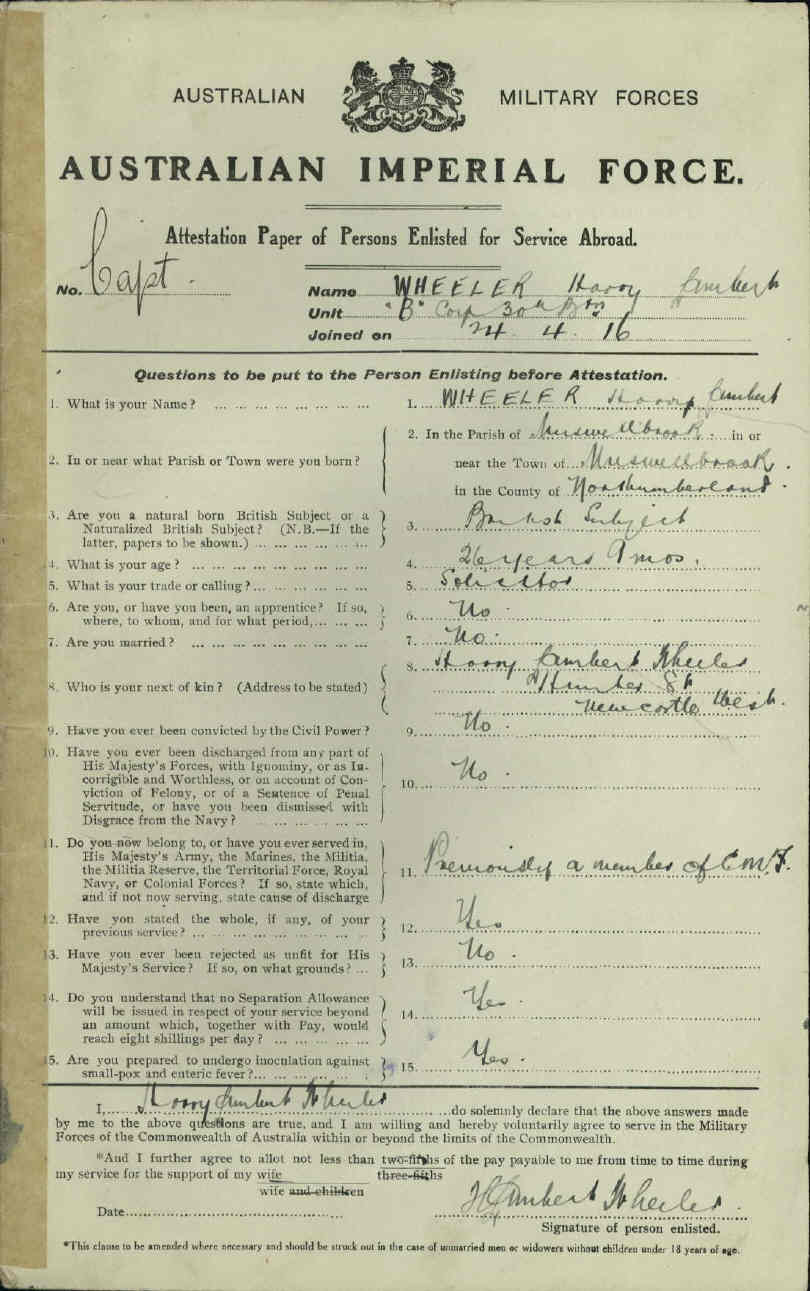 AUSTRALIAN MILITARY FORCES
AUSTRALIAN IMPERIAL FORCE.
Attestation Paper of Persons Enlisted for Service Abroad.
No. Capt. Name WHEELER Harry Lambert
Unit "B" Coy 30th Btn
Joined on 24. 4. 16
Questions to be put to the Person Enlisting before Attestation.
1. What is your Name? ... 1. WHEELER Harry Lambert
2. In or near what Parish or Town were you born? 2. In the Parish of Muswellbrook in or
near the Town of Muswellbrook.
in the County of Northumberland.
3. Are you a natural born British Subject or a
Naturalized British Subject? (N.B.—If the
latter, papers to be shown.) ... 3. British Subject
4. What is your age? ... 4. 26 years 9 mos.
5. What is your trade or calling? ... 5. Solicitor
6. Are you, or have you been, an apprentice? If so,
where, to whom, and for what period, ... 6. No.
7. Are you married? ... 7. No.
8. Who is your next of kin? (Address to be stated) 8. Harry Lambert Wheeler
Hunter St
Newcastle West.
9. Have you ever been convicted by the Civil Power? 9. No.
10. Have you ever been discharged from any part of
His Majesty's Forces, with Ignominy, or as In-
corrigible and Worthless, or on account of Con-
viction of Felony, or of a Sentence of Penal
Servitude, or have you been dismissed with
Disgrace from the Navy? ... 10. No.
11. Do you now belong to, or have you ever served in,
His Majesty's Army, the Marines, the Militia,
the Militia Reserve, the Territorial Force, Royal
Navy, or Colonial Forces? If so, state which,
and if not now serving, state cause of discharge 11. Previously a member of C.M.F.
12. Have you stated the whole, if any, of your
previous service? ... 12. Yes
13. Have you ever been rejected as unfit for His
Majesty's Service? If so, on what grounds? ... 13. No.
14. Do you understand that no Separation Allowance
will be issued in respect of your service beyond
an amount which, together with Pay, would
reach eight shillings per day? ... 14. Yes.
15. Are you prepared to undergo inoculation against
small-pox and enteric fever? ... 15. Yes.
I, Harry Lambert Wheeler do solemnly declare that the above answers made
by me to the above questions are true, and I am willing and hereby voluntarily agree to serve in the Military
Forces of the Commonwealth of Australia within or beyond the limits of the Commonwealth.
*And I further agree to allot not less than two-fifths of the pay payable to me from time to time during
three-fifths
my service for the support of my wife
wife and children
Date H Lambert Wheeler.
Signature of person enlisted.
*This clause to be amended where necessary and should be struck out in the case of unmarried men or widowers without children under 18 years of age.